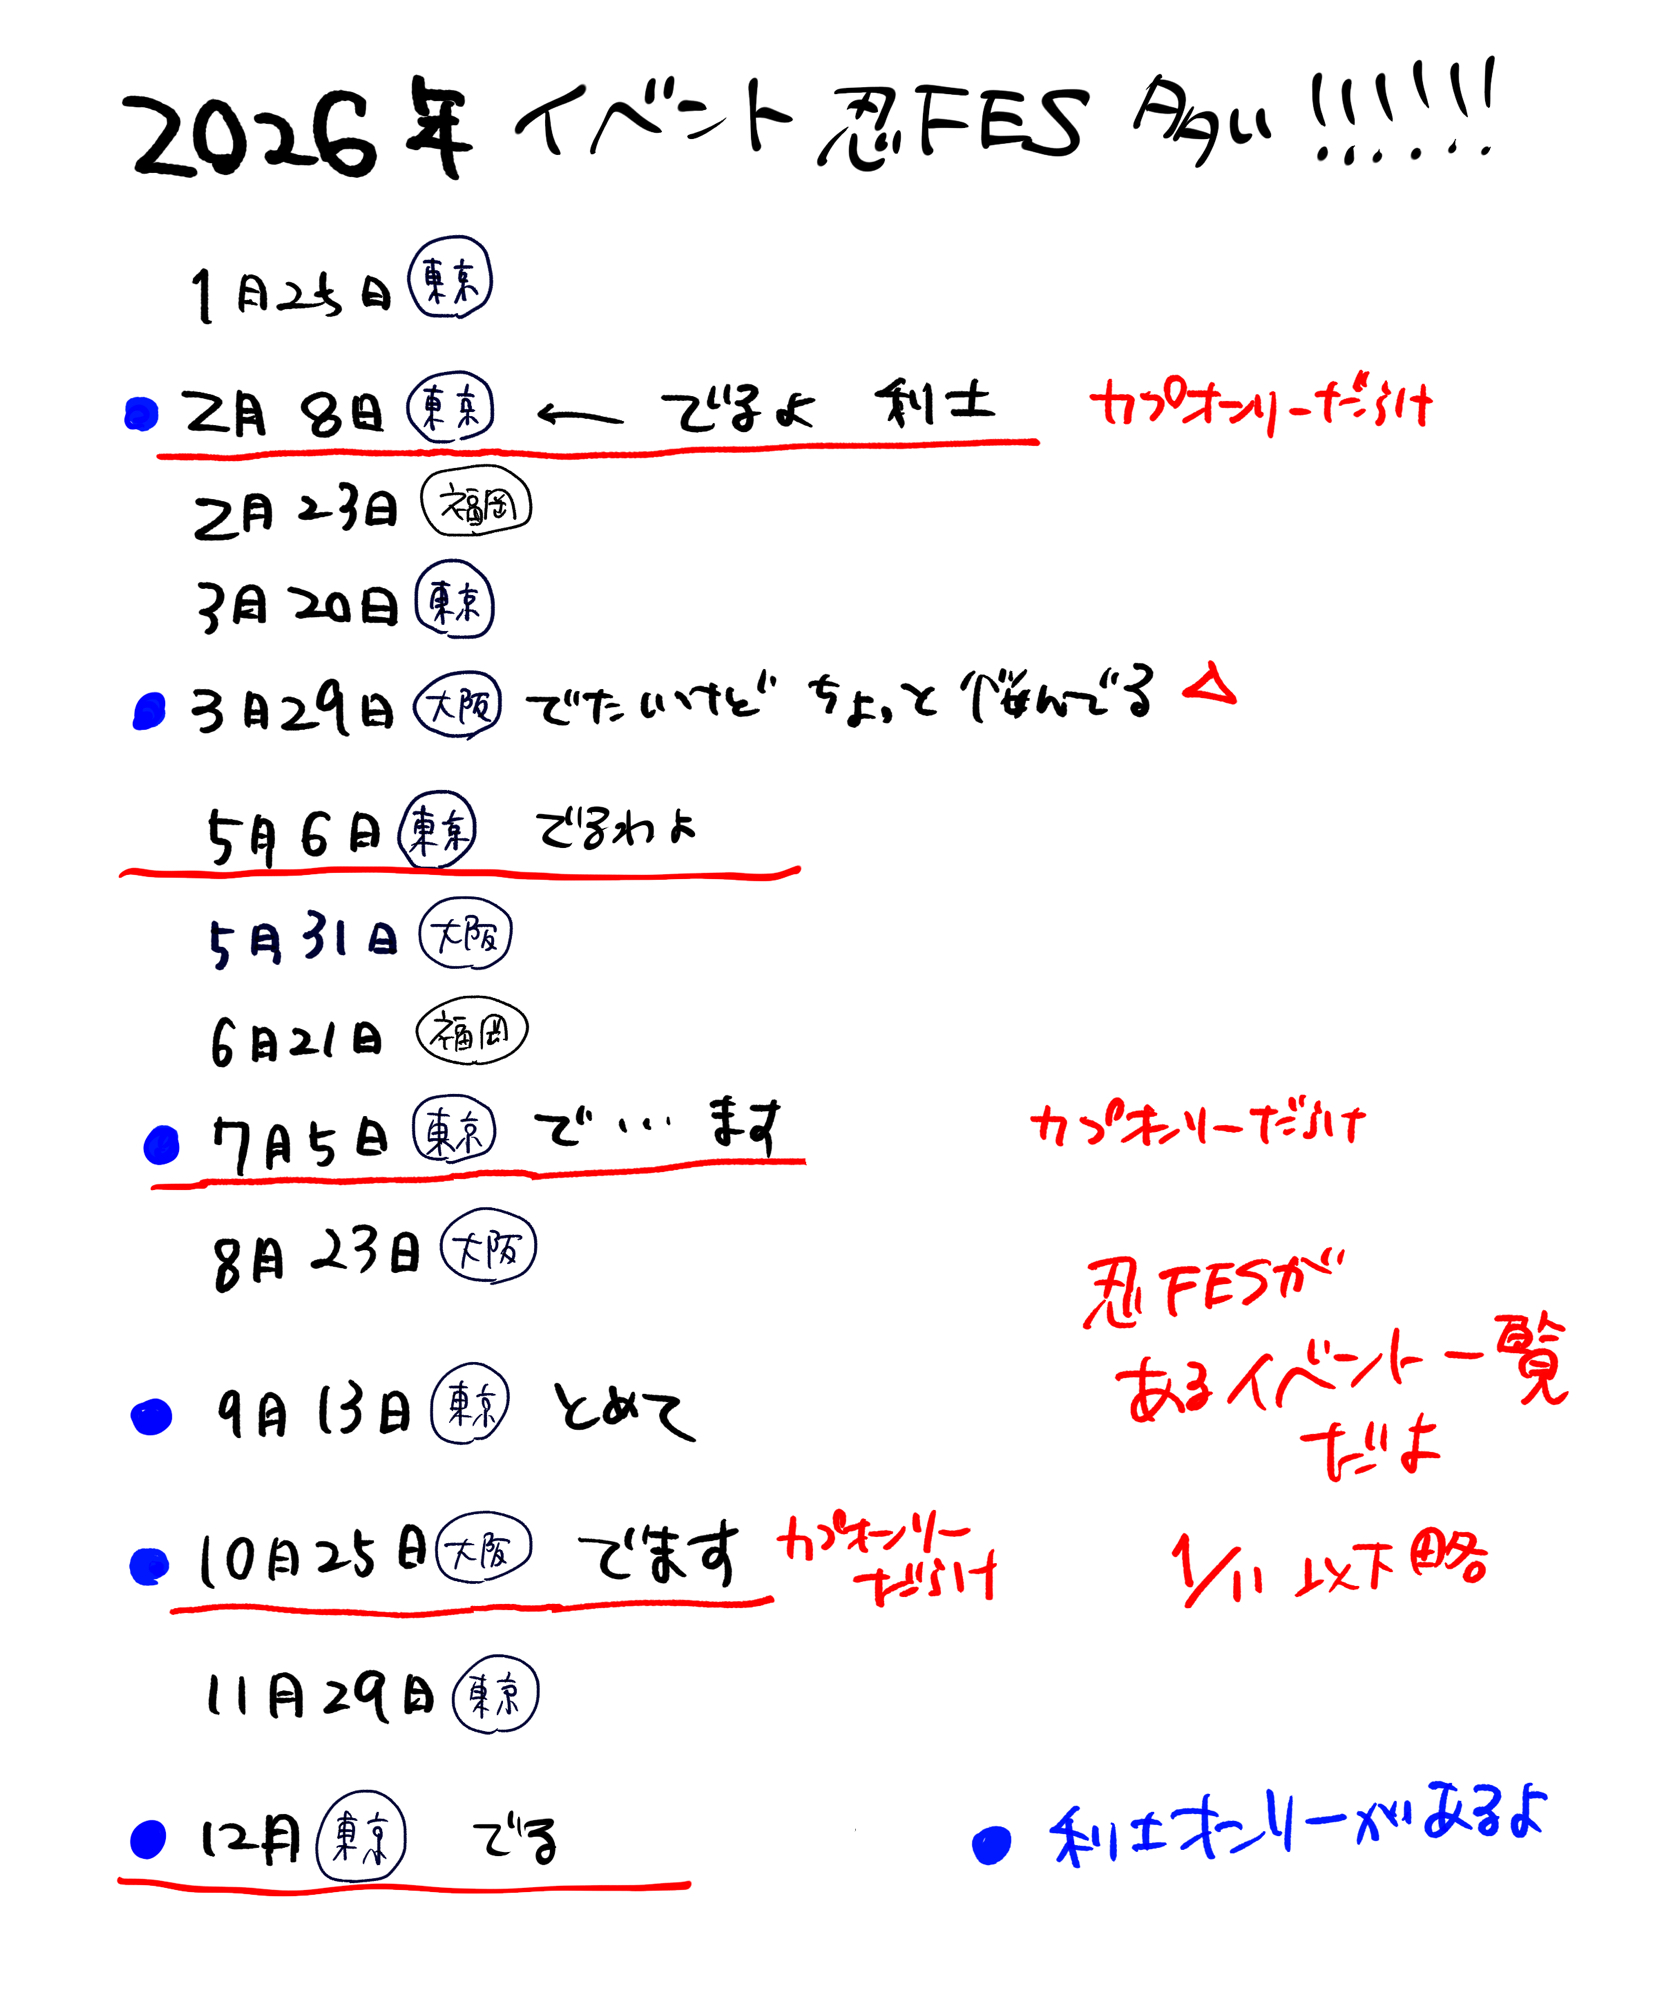 2026年 イベント 忍FES 多い!!!!!!
1月25日 東京
2月8日 東京 ← でるよ 利土 カプオンリーだらけ
2月23日 福岡
3月20日 東京
3月29日 大阪 でたいけど ちょっと 悩んでる △
5月6日 東京 でるわよ
5月31日 大阪
6月21日 福岡
7月5日 東京 で…ます カプオンリーだらけ
8月23日 大阪
忍FESが
あるイベント一覧
だよ
9月13日 東京 とめて
10月25日 大阪 でます カプオンリー
だらけ
1/11 以下略
11月29日 東京
12月 東京 でる
● 利土オンリーがあるよ